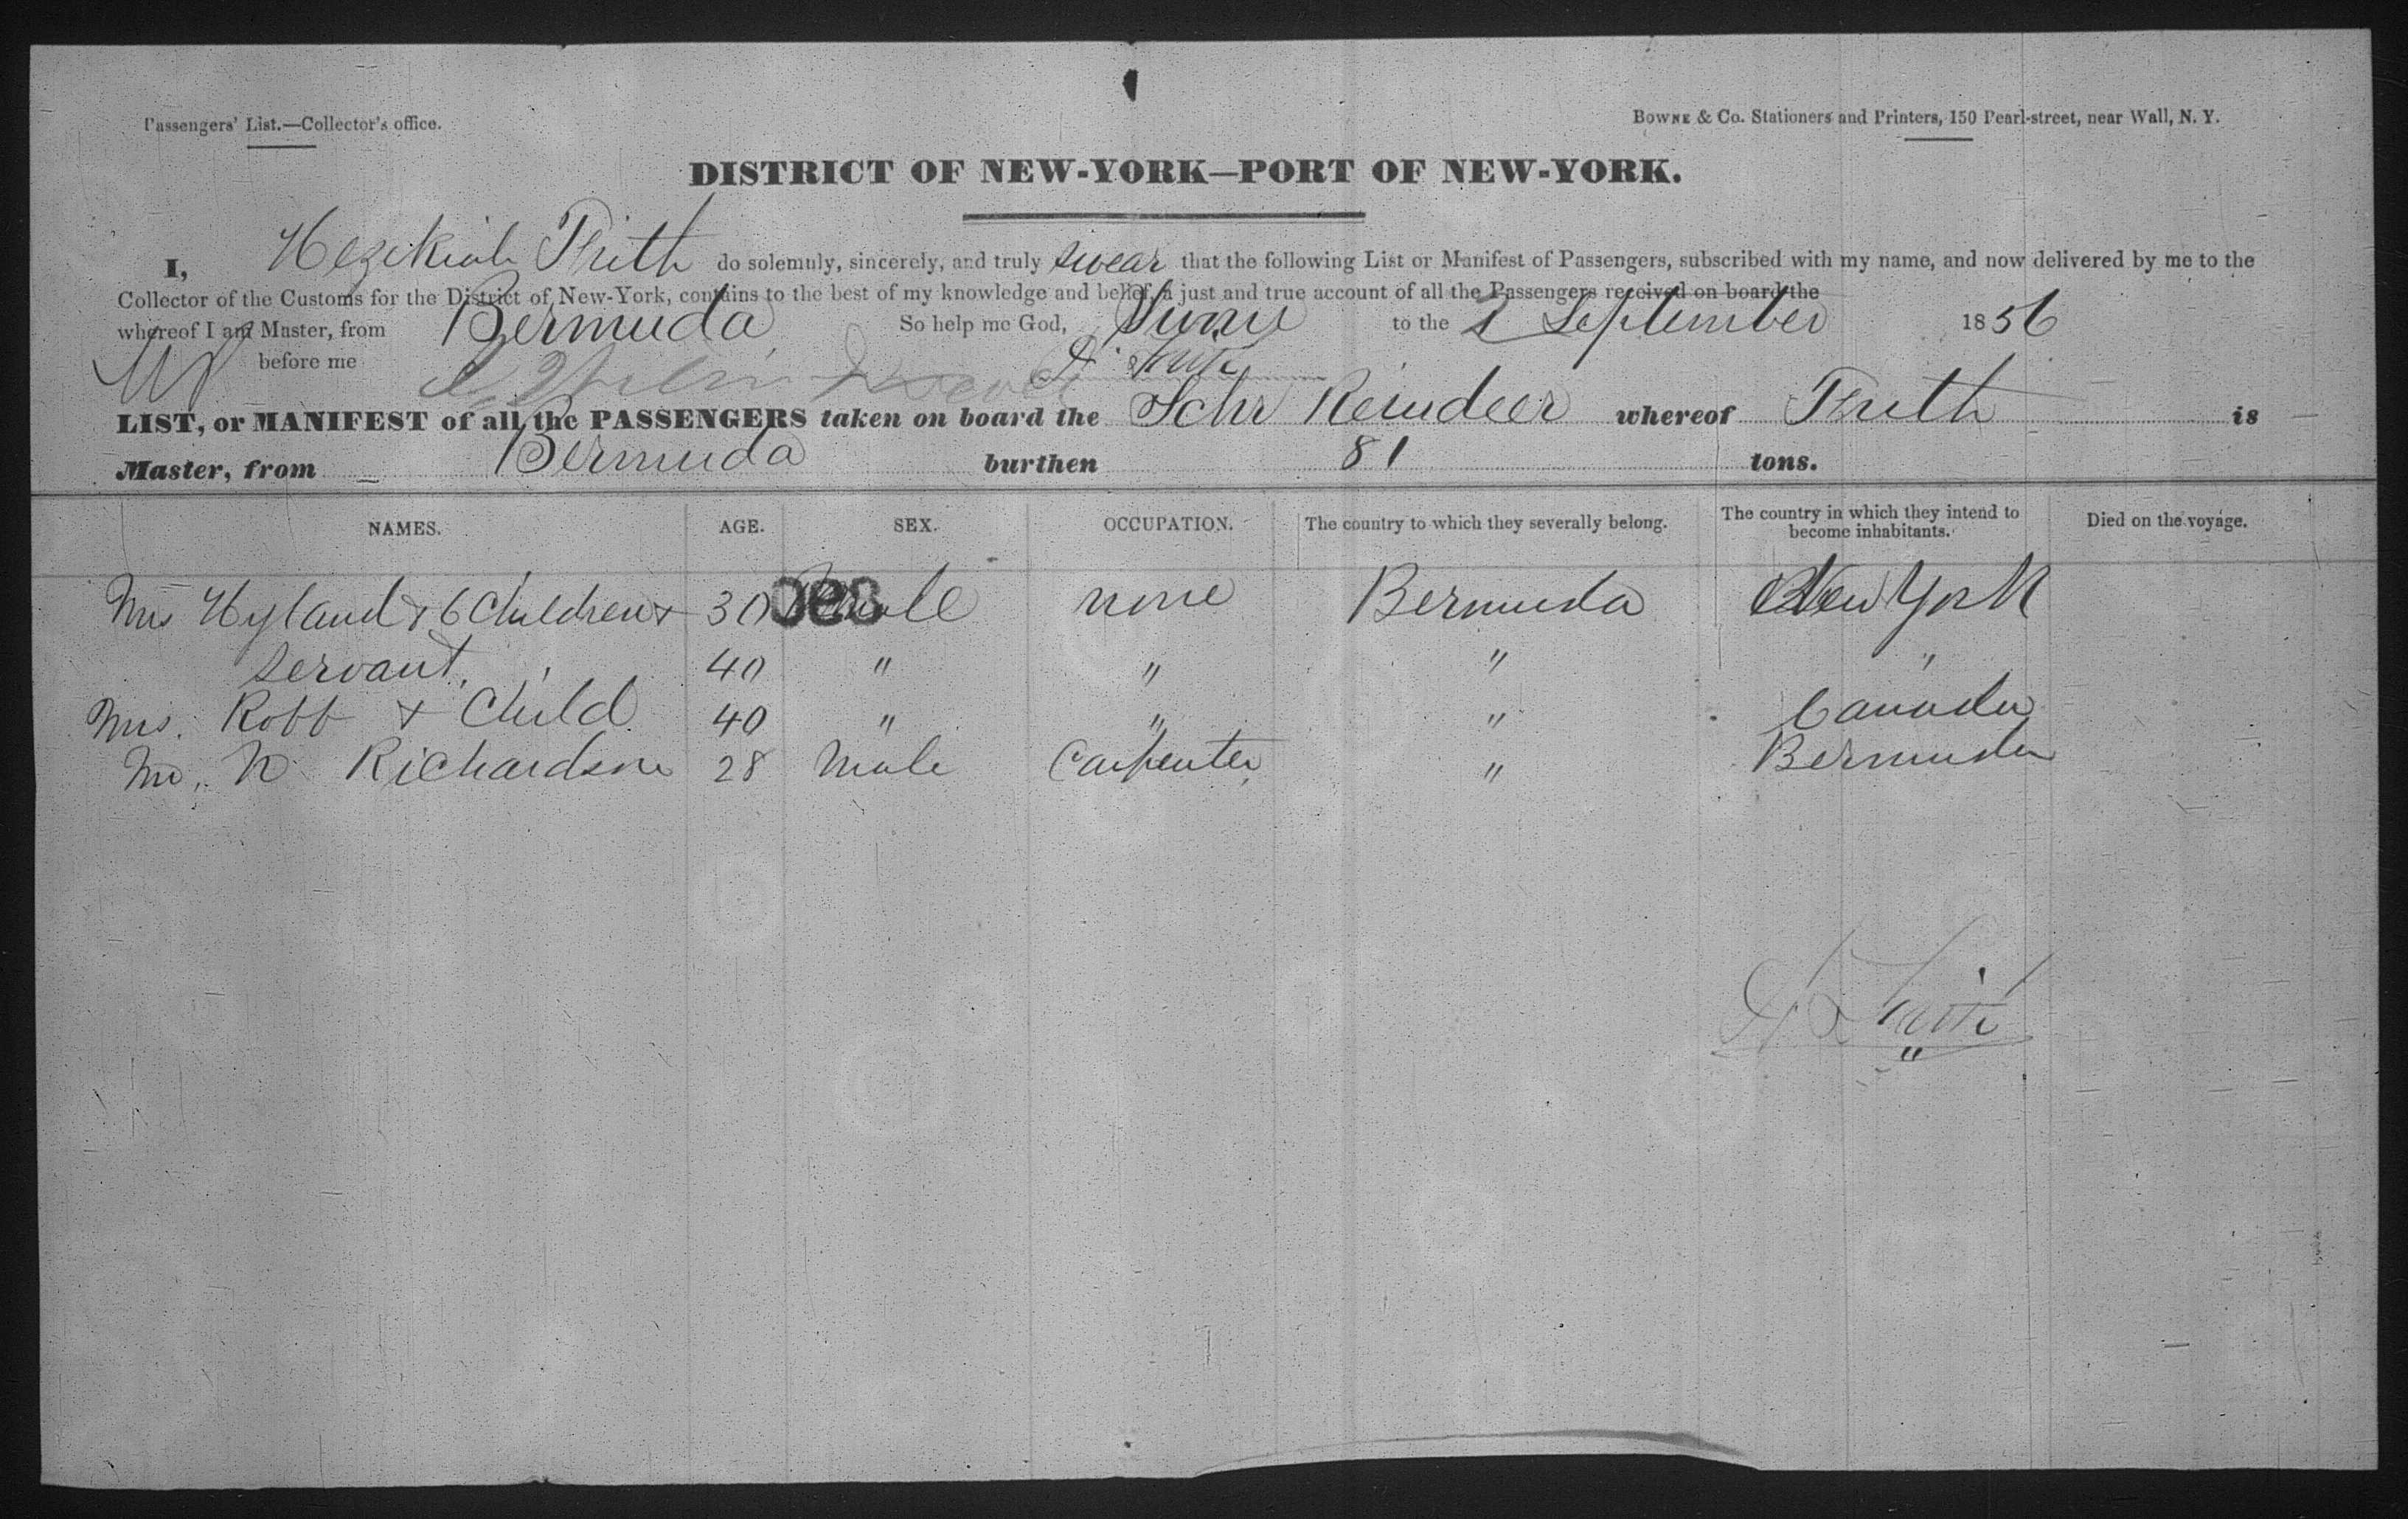 Passengers' List.—Collector's office.
Bowne & Co. Stationers and Printers, 150 Pearl-street, near Wall, N. Y.
DISTRICT OF NEW-YORK—PORT OF NEW-YORK.
I, Hezekiah Frith do solemnly, sincerely, and truly swear that the following List or Manifest of Passengers, subscribed with my name, and now delivered by me to the
Collector of the Customs for the District of New-York, contains to the best of my knowledge and belief, a just and true account of all the Passengers received on board the
whereof I am Master, from Bermuda So help me God, Sworn to the 2 September 1856
before me H Frith
LIST, or MANIFEST of all the PASSENGERS taken on board the Schr Reindeer whereof Frith is
Master, from Bermuda burthen 81 tons.
NAMES. AGE. SEX. OCCUPATION. The country to which they severally belong. The country in which they intend to become inhabitants. Died on the voyage.
Mrs Hyland & 6 Children & 30 Female none Bermuda New York
servant. 40 " " " "
Mrs. Robb & Child 40 " " " Canada
Mr. N Richardson 28 Male Carpenter " Bermuda
H Frith